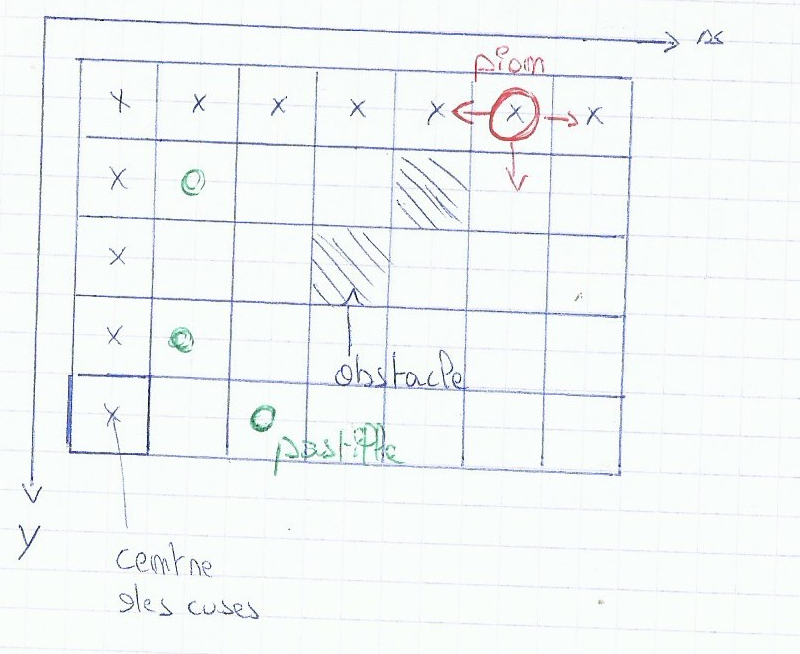 x
pion
x x x x x x x
x
x
x
obstacle
x
pastille
y
centre
des cases